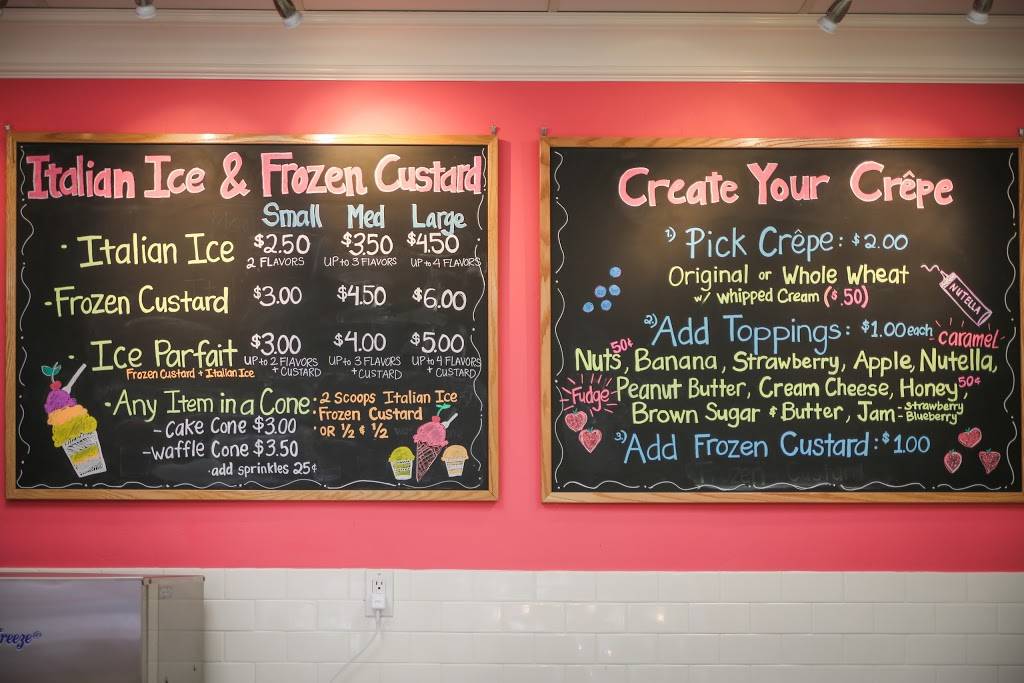 Italian Ice & Frozen Custard
Small Med Large
· Italian Ice $2.50 $3.50 $4.50
2 FLAVORS UP to 3 FLAVORS UP to 4 FLAVORS
-Frozen Custard $3.00 $4.50 $6.00
· Ice Parfait $3.00 $4.00 $5.00
Frozen Custard + Italian Ice
UP to 2 FLAVORS + CUSTARD UP to 3 FLAVORS + CUSTARD UP to 4 FLAVORS + CUSTARD
· Any Item in a Cone · 2 Scoops Italian Ice
· Frozen Custard
· OR 1/2 & 1/2
- Cake Cone $3.00
-Waffle Cone $3.50
·add sprinkles 25¢
Create Your Crêpe
1) Pick Crêpe: $2.00
Original or Whole Wheat
w/ whipped Cream ($.50)
NUTELLA
2) Add Toppings: $1.00 each
caramel
Nuts 50¢, Banana, Strawberry, Apple, Nutella,
Fudge
Peanut Butter, Cream Cheese, Honey 50¢
Brown Sugar & Butter, Jam - Strawberry
- Blueberry
3) Add Frozen Custard: $1.00
reeze